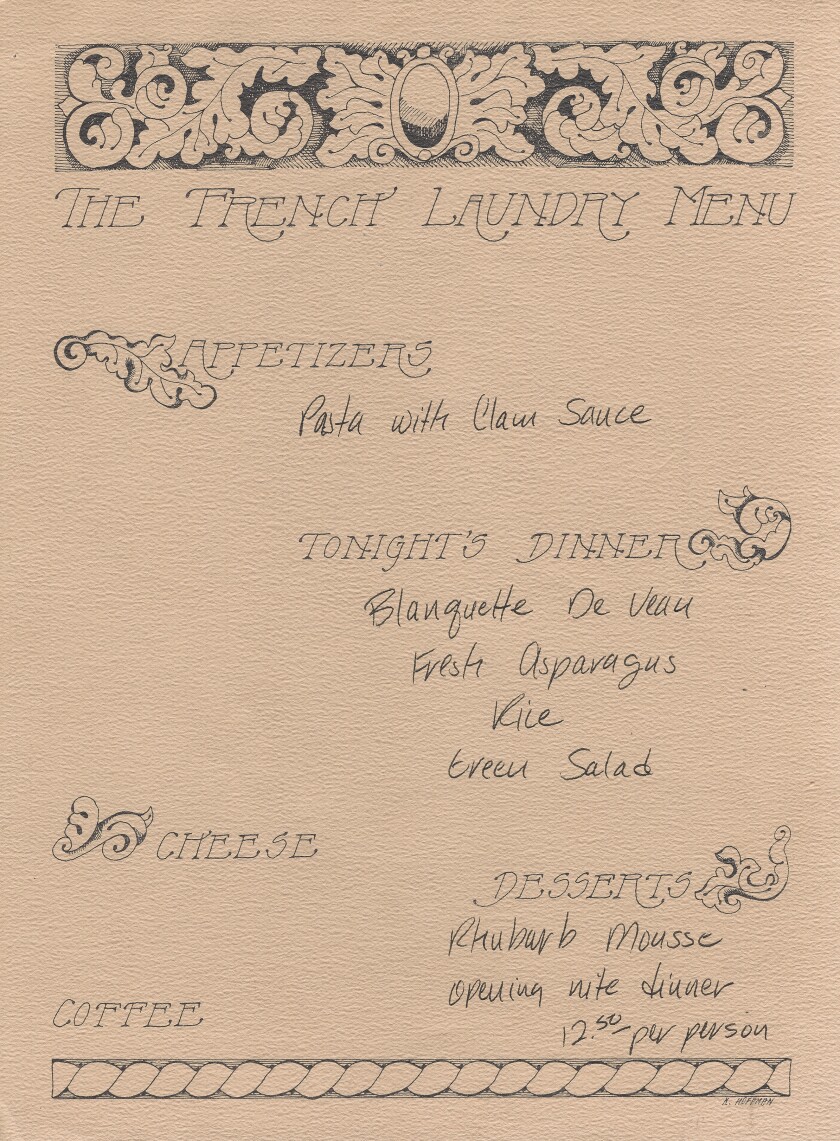 THE FRENCH LAUNDRY MENU
APPETIZERS
Pasta with Clam Sauce
TONIGHT'S DINNER
Blanquette De Veau
Fresh Asparagus
Rice
Green Salad
CHEESE
DESSERTS
Rhubarb Mousse
opening nite dinner
COFFEE
12.50 per person
K. HOFFMAN